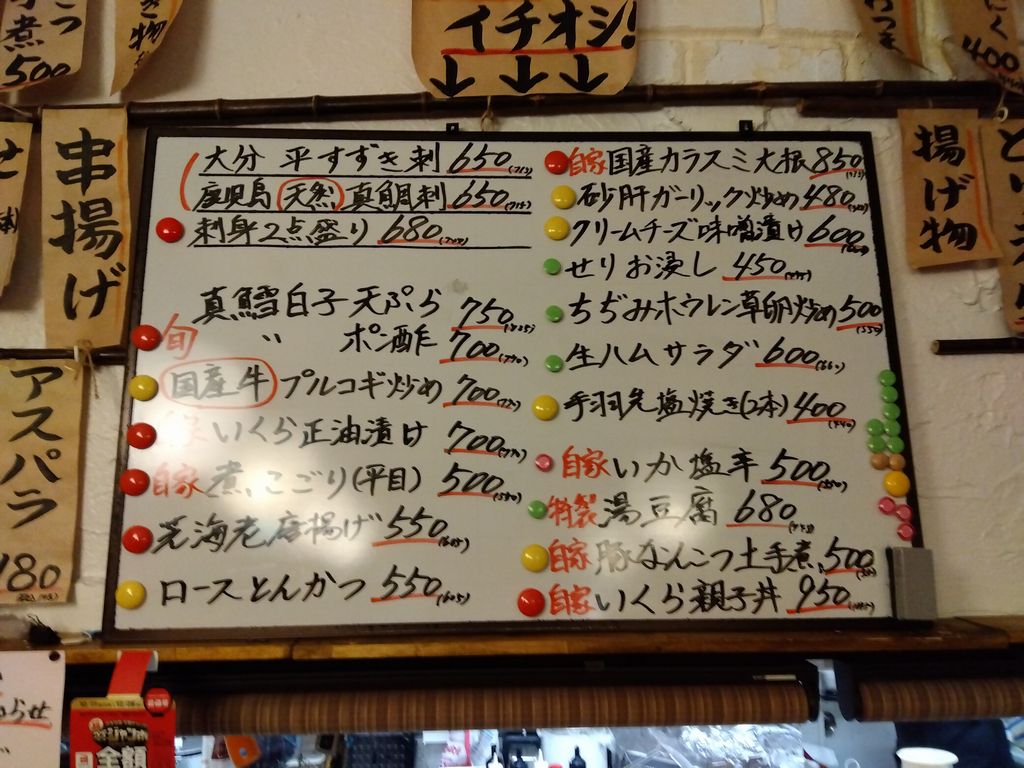 煮
500
き物
イチオシ!
↓ ↓ ↓
400
串揚げ
揚げ物
アスパラ
180
大分 平すずき刺 650
鹿児島 天然 真鯛刺 650
刺身2点盛り 680
真鱈白子天ぷら 750
旬 〃 ポン酢 700
国産牛 プルコギ炒め 700
いくら正油漬け 700
自家 煮こごり(平目) 500
芝海老唐揚げ 550(605)
ロースとんかつ 550(605)
自家 国産カラスミ大根 850
砂肝ガーリック炒め 480
クリームチーズ味噌漬け 600
せりお浸し 450
ちぢみホウレン草卵炒め 500
生ハムサラダ 600(660)
手羽先塩焼き(2本) 400(440)
自家 いか塩辛 500(550)
特製 湯豆腐 680
自家 豚なんこつ土手煮 500
自家 いくら親子丼 950
らせ
全額